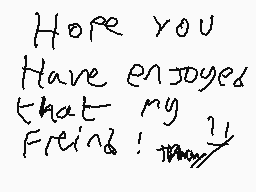 Hope you
Have enjoyed
that my
Freind!